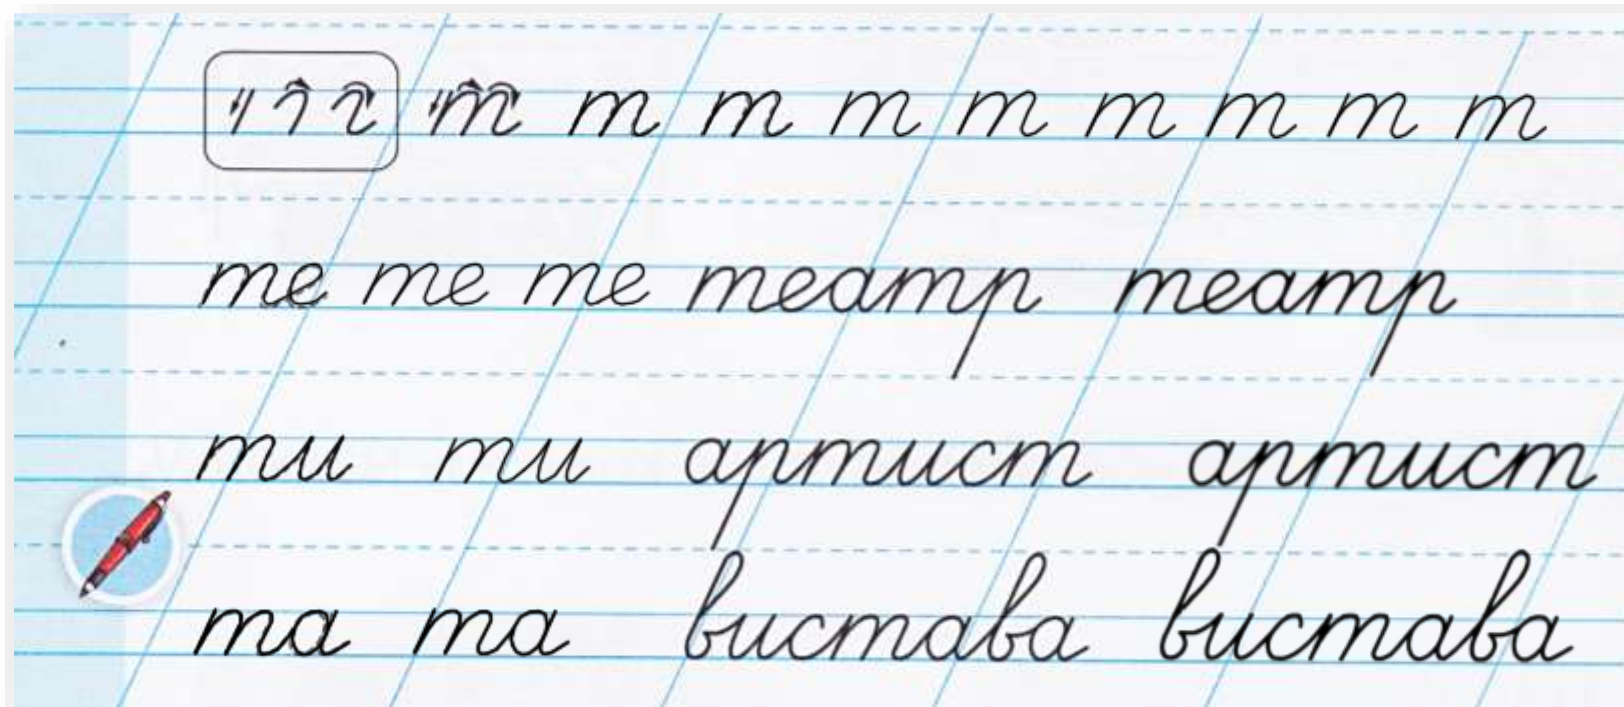 т т т т т т т т т
те те те театр театр
ти ти артист артист
та та вистава вистава